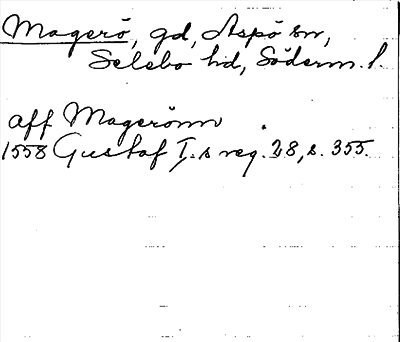 Magerö, gd, Aspö sn,
Selebo hd, Söderm. l.
aff Magerönn
1558 Gustaf I:s reg. 28, s. 355.